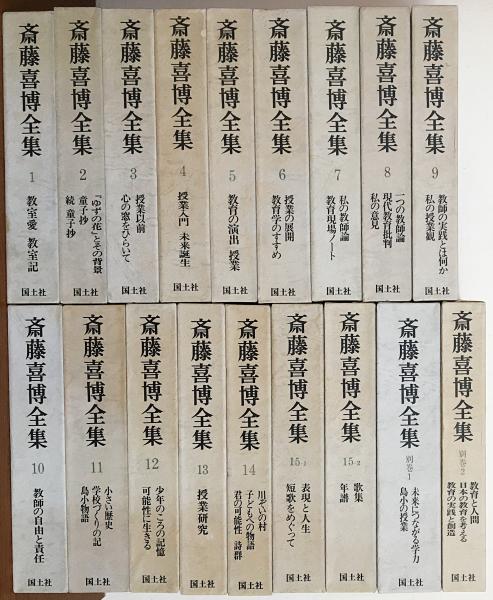 斎藤喜博全集
1
教室愛 教室記
国土社
斎藤喜博全集
2
「ゆずの花」とその背景
童子抄
続 童子抄
国土社
斎藤喜博全集
3
授業以前
心の窓をひらいて
国土社
斎藤喜博全集
4
授業入門 未来誕生
国土社
斎藤喜博全集
5
教育の演出 授業
国土社
斎藤喜博全集
6
授業の展開
教育学のすすめ
国土社
斎藤喜博全集
7
私の教師論
教育現場ノート
国土社
斎藤喜博全集
8
一つの教師論
現代教育批判
私の意見
国土社
斎藤喜博全集
9
教師の実践とは何か
私の授業観
国土社
斎藤喜博全集
10
教師の自由と責任
国土社
斎藤喜博全集
11
小さい歴史
学校づくりの記
島小物語
国土社
斎藤喜博全集
12
少年のころの記憶
可能性に生きる
国土社
斎藤喜博全集
13
授業研究
国土社
斎藤喜博全集
14
川ぞいの村
子どもへの物語
君の可能性 詩群
国土社
斎藤喜博全集
15-1
表現と人生
短歌をめぐって
国土社
斎藤喜博全集
15-2
歌集
年譜
国土社
斎藤喜博全集
別巻1
未来につながる学力
島小の授業
国土社
斎藤喜博全集
別巻2
教育と人間
日本の教育を考える
教育の実践と創造
国土社